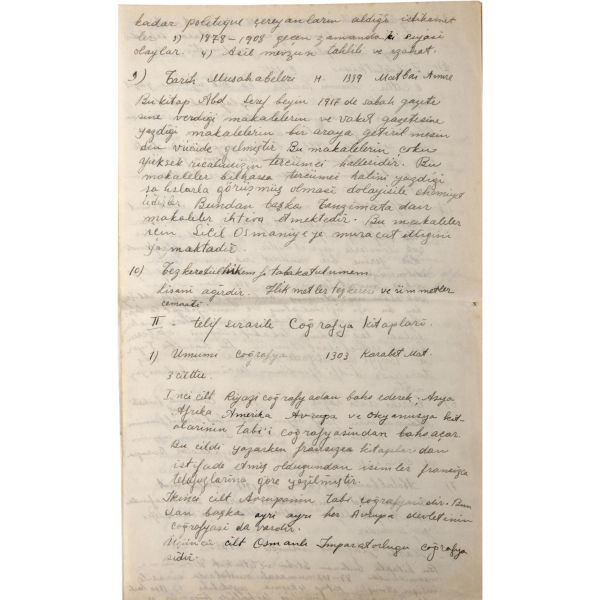 kadar politique cereyanların aldığı istikamet
ler 3) 1878-1908 geçen zamandaki siyasi
olaylar. 4) Asıl mevzun tahlili ve izahat.
9) Tarih Musahabeleri H. 1339 Matbai Amire
Bu kitap Abd. Şeref beyin 1917 de sabah gazete
sine verdiği makalelerin ve vakit gazetesine
yazdığı makalelerin bir araya getirilmesin
den vücude gelmiştir Bu makalelerin çoku
yüksek ricalımızın tercümei halleridir. Bu
makaleler bilhassa tercümei halini yazdığı
şahıslarla görüşmüş olması dolayısile ehemiyet
lidirler. Bundan başka Tanzimata dair
makaleler ihtiva etmektedir. Bu makaleler
için Sicil Osmaniyeye muracat ettigini
yazmaktadır.
10) Tezkeretulhikem fi tabakatulumem
Lisanı ağırdır. Hikmetler tezkeresi ve ümmetler
cemaati.
II - telif sırasile Coğrafya kitapları.
1) Umumi Coğrafya 1303 Karabet Mat.
3 ciltlir.
I.nci cilt Riyazi coğrafyadan bahs ederek, Asya
Afrika, Amerika Avrupa ve Okyanusya kıt-
alarının tabi'i coğrafyasından bahs açar.
Bu cildi yazarken fransızca kitaplardan
istifade etmiş olduğundan isimler fransızca
telaffuzlarına göre yazılmıştır.
İkinci cilt Avrupanın tabi coğrafyasıdır. Bun
dan başka ayrı ayrı her Avrupa devletinin
coğrafyası da vardır.
Üçüncü cilt Osmanlı Imparatorluğu coğrafya
sıdır.